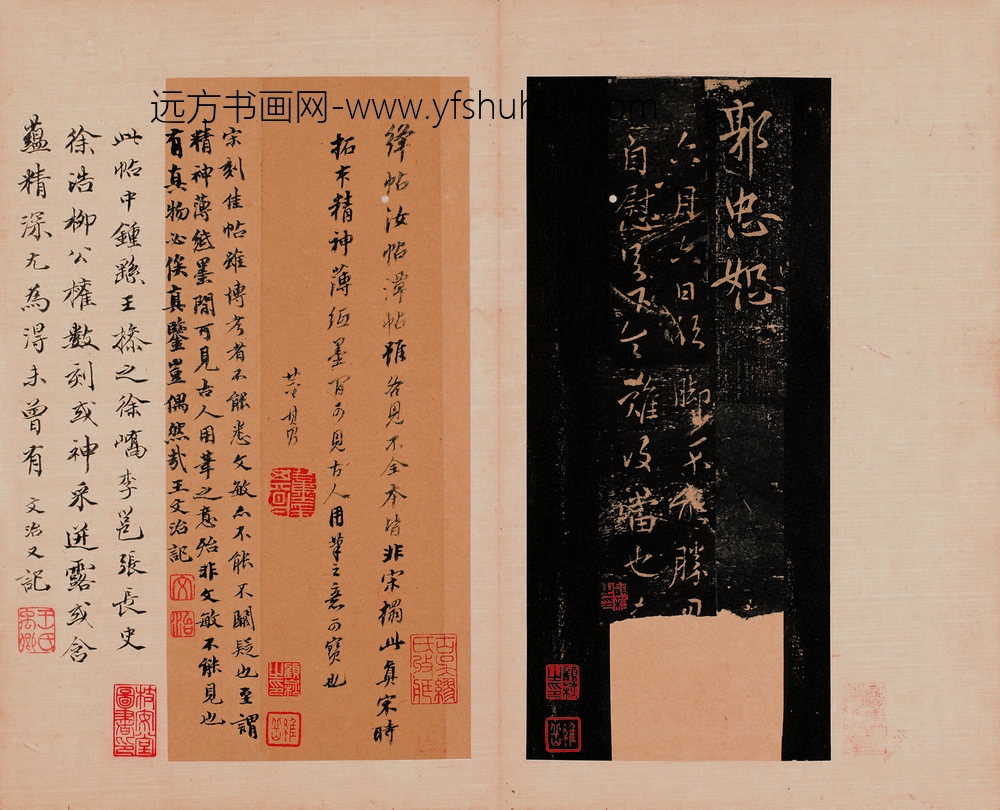 远方书画网-www.yfshuhua.com
郭忠恕
六月六日
自慰
也
絳帖汝帖潭帖雖各見不全本皆非宋搨此真宋時
拓本精神薄紙墨間可見古人用筆之意可寶也
董其昌
宋刻佳帖雖博考者不能悉文敏亦不能不闕疑也至謂
精神薄紙墨間可見古人用筆之意殆非文敏不能見也
有真物必俟真鑒豈偶然哉王文治記
文治
此帖中鍾繇王操之徐嶠李邕張長史
徐浩柳公權數刻或神采迸露或含
蘊精深尤為得未曾有 文治又記